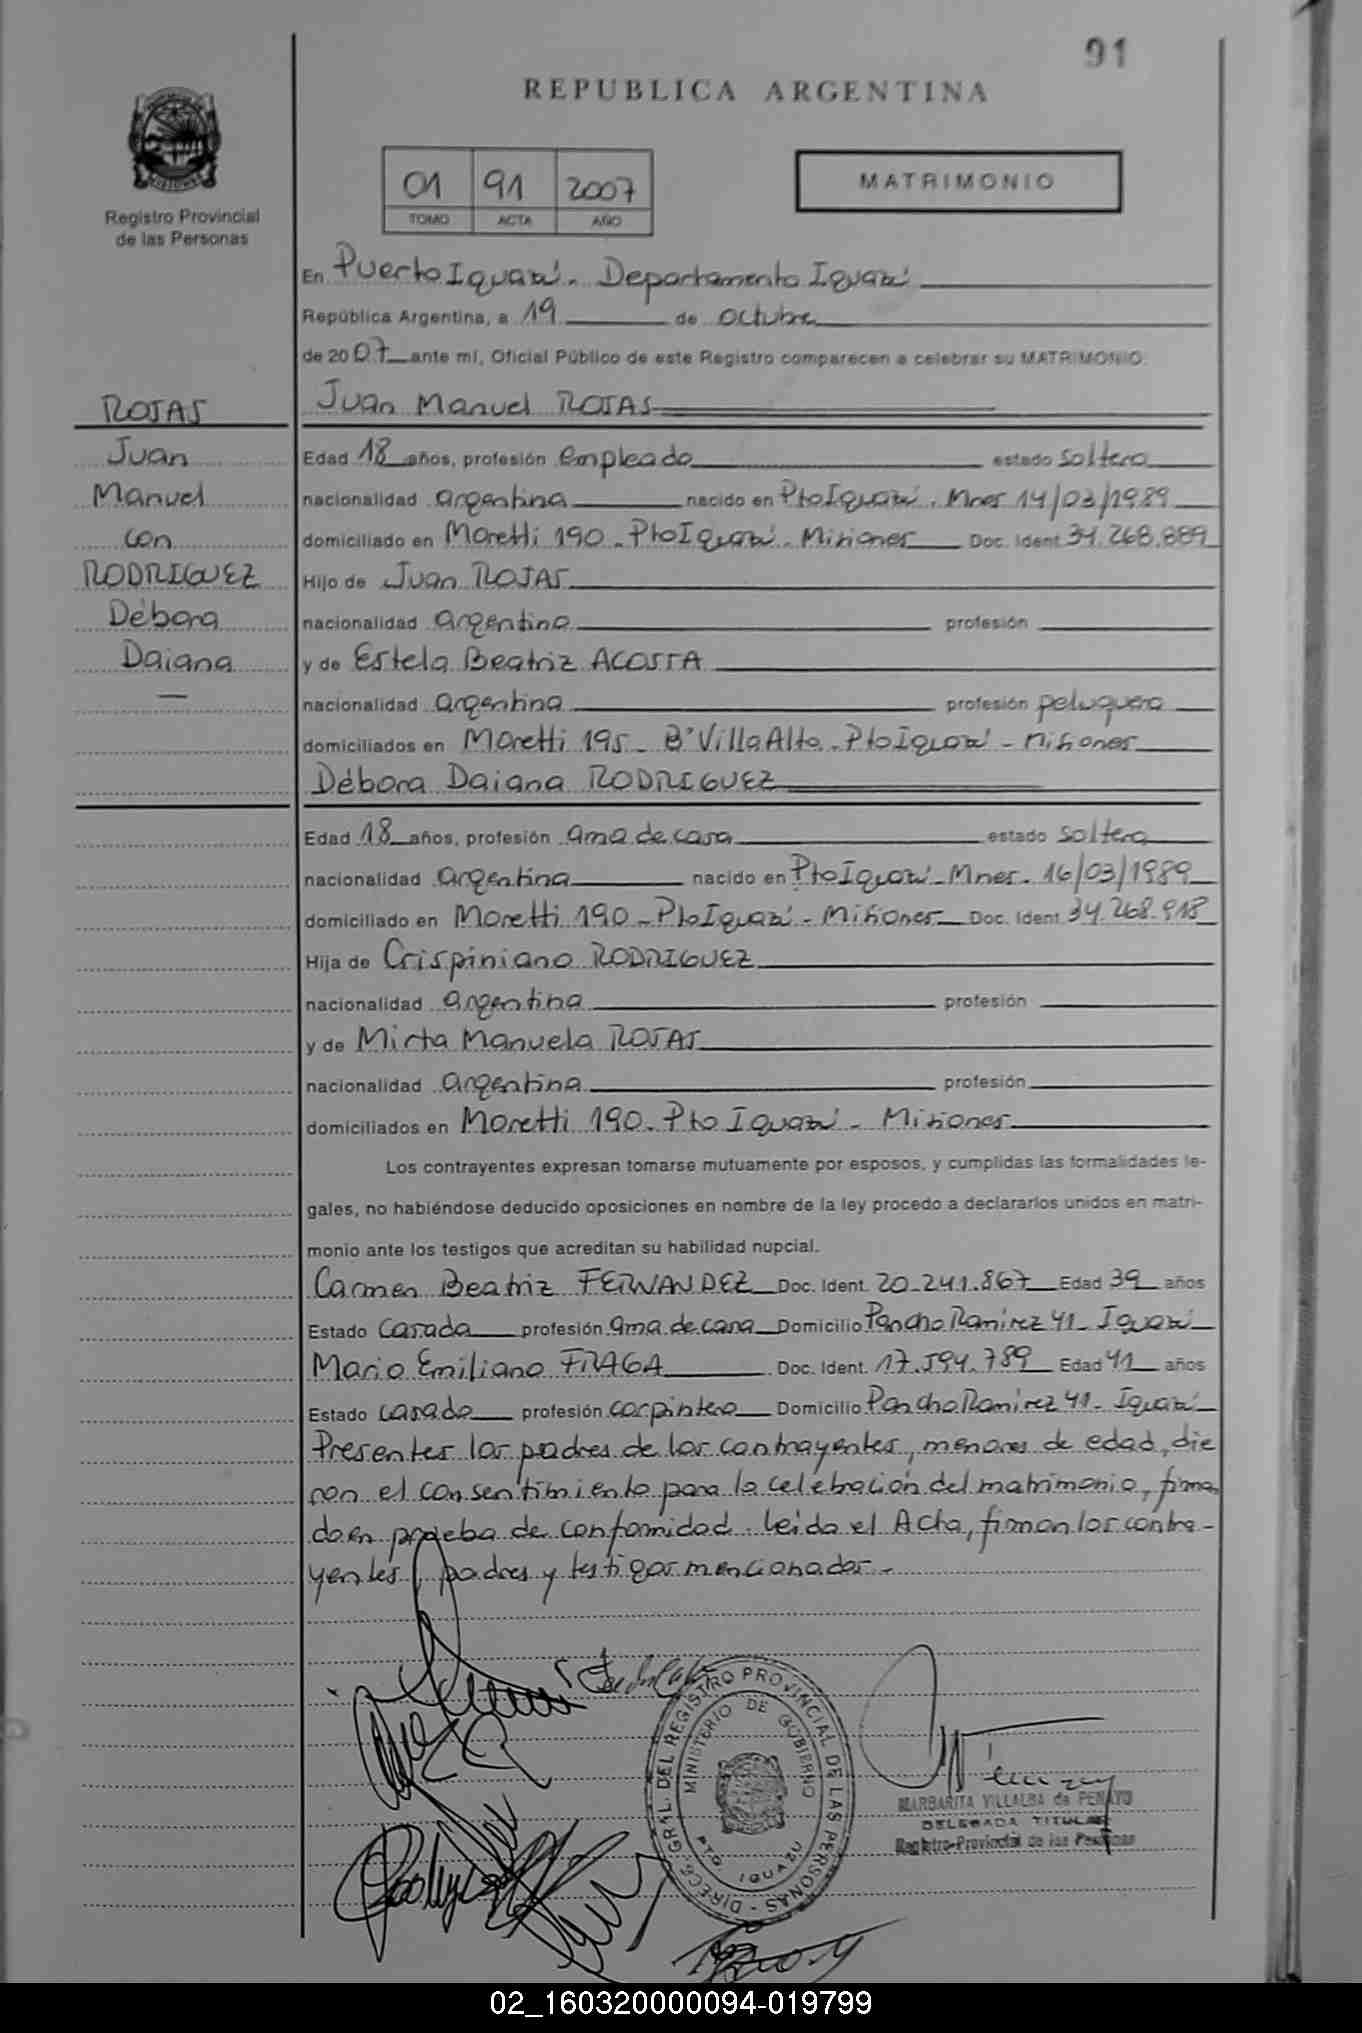 91
REPUBLICA ARGENTINA
Registro Provincial
de las Personas
01 91 2007
TOMO ACTA AÑO
MATRIMONIO
En Puerto Iguazú - Departamento Iguazú
República Argentina, a 19 de octubre
de 2007 ante mí, Oficial Público de este Registro comparecen a celebrar su MATRIMONIO:
ROJAS
Juan
Manuel
con
RODRIGUEZ
Débora
Daiana
—
Juan Manuel ROJAS
Edad 18 años, profesión empleado estado soltero
nacionalidad argentina nacido en Pto Iguazú. Mnes 14/03/1989
domiciliado en Moretti 190 - Pto Iguazú - Misiones Doc. Ident 34.268.889
Hijo de Juan ROJAS
nacionalidad argentina profesión
y de Estela Beatriz ACOSTA
nacionalidad argentina profesión peluquera
domiciliados en Moretti 195 - Bº Villa Alta - Pto Iguazú - Misiones
Débora Daiana RODRIGUEZ
Edad 18 años, profesión ama de casa estado soltera
nacionalidad argentina nacido en Pto Iguazú - Mnes - 16/03/1989
domiciliado en Moretti 190 - Pto Iguazú - Misiones Doc. Ident 34.268.918
Hija de Crispiniano RODRIGUEZ
nacionalidad argentina profesión
y de Mirta Manuela ROJAS
nacionalidad argentina profesión
domiciliados en Moretti 190 - Pto Iguazú - Misiones
Los contrayentes expresan tomarse mutuamente por esposos, y cumplidas las formalidades le-
gales, no habiéndose deducido oposiciones en nombre de la ley procedo a declararlos unidos en matri-
monio ante los testigos que acreditan su habilidad nupcial.
Carmen Beatriz FERNANDEZ Doc. Ident. 20.241.867 Edad 39 años
Estado casada profesión ama de casa Domicilio Pancho Ramírez 41 - Iguazú
Mario Emiliano FRAGA Doc. Ident. 17.594.789 Edad 41 años
Estado casado profesión carpintero Domicilio Pancho Ramírez 41 - Iguazú
Presentes los padres de los contrayentes, menores de edad, die
ron el consentimiento para la celebración del matrimonio, firman
do en prueba de conformidad. Leída el Acta, firman los contra-
yentes, padres y testigos mencionados.-
DIREC. GRAL. DEL REGISTRO PROVINCIAL DE LAS PERSONAS
MINISTERIO DE GOBIERNO
PTO. IGUAZU
MARGARITA VILLALBA de PENAYO
DELEGADA TITULAR
Registro Provincial de las Personas
02_160320000094-019799